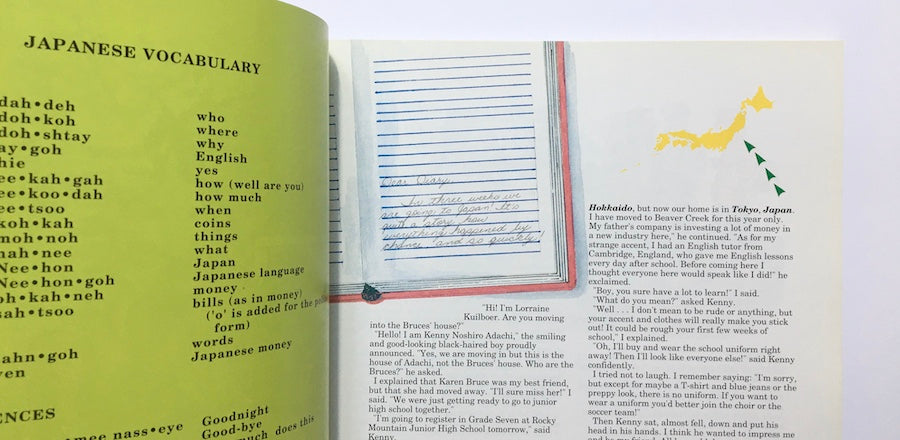 JAPANESE VOCABULARY
dah•deh
doh•koh
doh•shtay
ay•goh
hie
ee•kah•gah
ee•koo•dah
ee•tsoo
koh•kah
moh•noh
nah•nee
Nee•hon
Nee•hon•goh
oh•kah•neh
sah•tsoo
ahn•goh
yen
who
where
why
English
yes
how (well are you)
how much
when
coins
things
what
Japan
Japanese language
money
bills (as in money)
('o' is added for the
form)
words
Japanese money
ENCES
mee nass•eye
Goodnight
Good-bye
much does this
Dear Diary,
In three weeks we
are going to Japan! It's
quite a story how
everything happened by
chance and so quickly!
"Hi! I'm Lorraine
Kuilboer. Are you moving
into the Bruces' house?"
"Hello! I am Kenny Noshiro Adachi," the smiling
and good-looking black-haired boy proudly
announced. "Yes, we are moving in but this is the
house of Adachi, not the Bruces' house. Who are the
Bruces?" he asked.
I explained that Karen Bruce was my best friend,
but that she had moved away. "I'll sure miss her!" I
said. "We were just getting ready to go to junior
high school together."
"I'm going to register in Grade Seven at Rocky
Mountain Junior High School tomorrow," said
Kenny.
Hokkaido, but now our home is in Tokyo, Japan.
I have moved to Beaver Creek for this year only.
My father's company is investing a lot of money in
a new industry here," he continued. "As for my
strange accent, I had an English tutor from
Cambridge, England, who gave me English lessons
every day after school. Before coming here I
thought everyone here would speak like I did!" he
exclaimed.
"Boy, you sure have a lot to learn!" I said.
"What do you mean?" asked Kenny.
"Well . . . I don't mean to be rude or anything, but
your accent and clothes will really make you stick
out! It could be rough your first few weeks of
school," I explained.
"Oh, I'll buy and wear the school uniform right
away! Then I'll look like everyone else!" said Kenny
confidently.
I tried not to laugh. I remember saying: "I'm sorry,
but except for maybe a T-shirt and blue jeans or the
preppy look, there is no uniform. If you want to
wear a uniform you'd better join the choir or the
soccer team!"
Then Kenny sat, almost fell, down and put his
head in his hands. I think he wanted to impress me